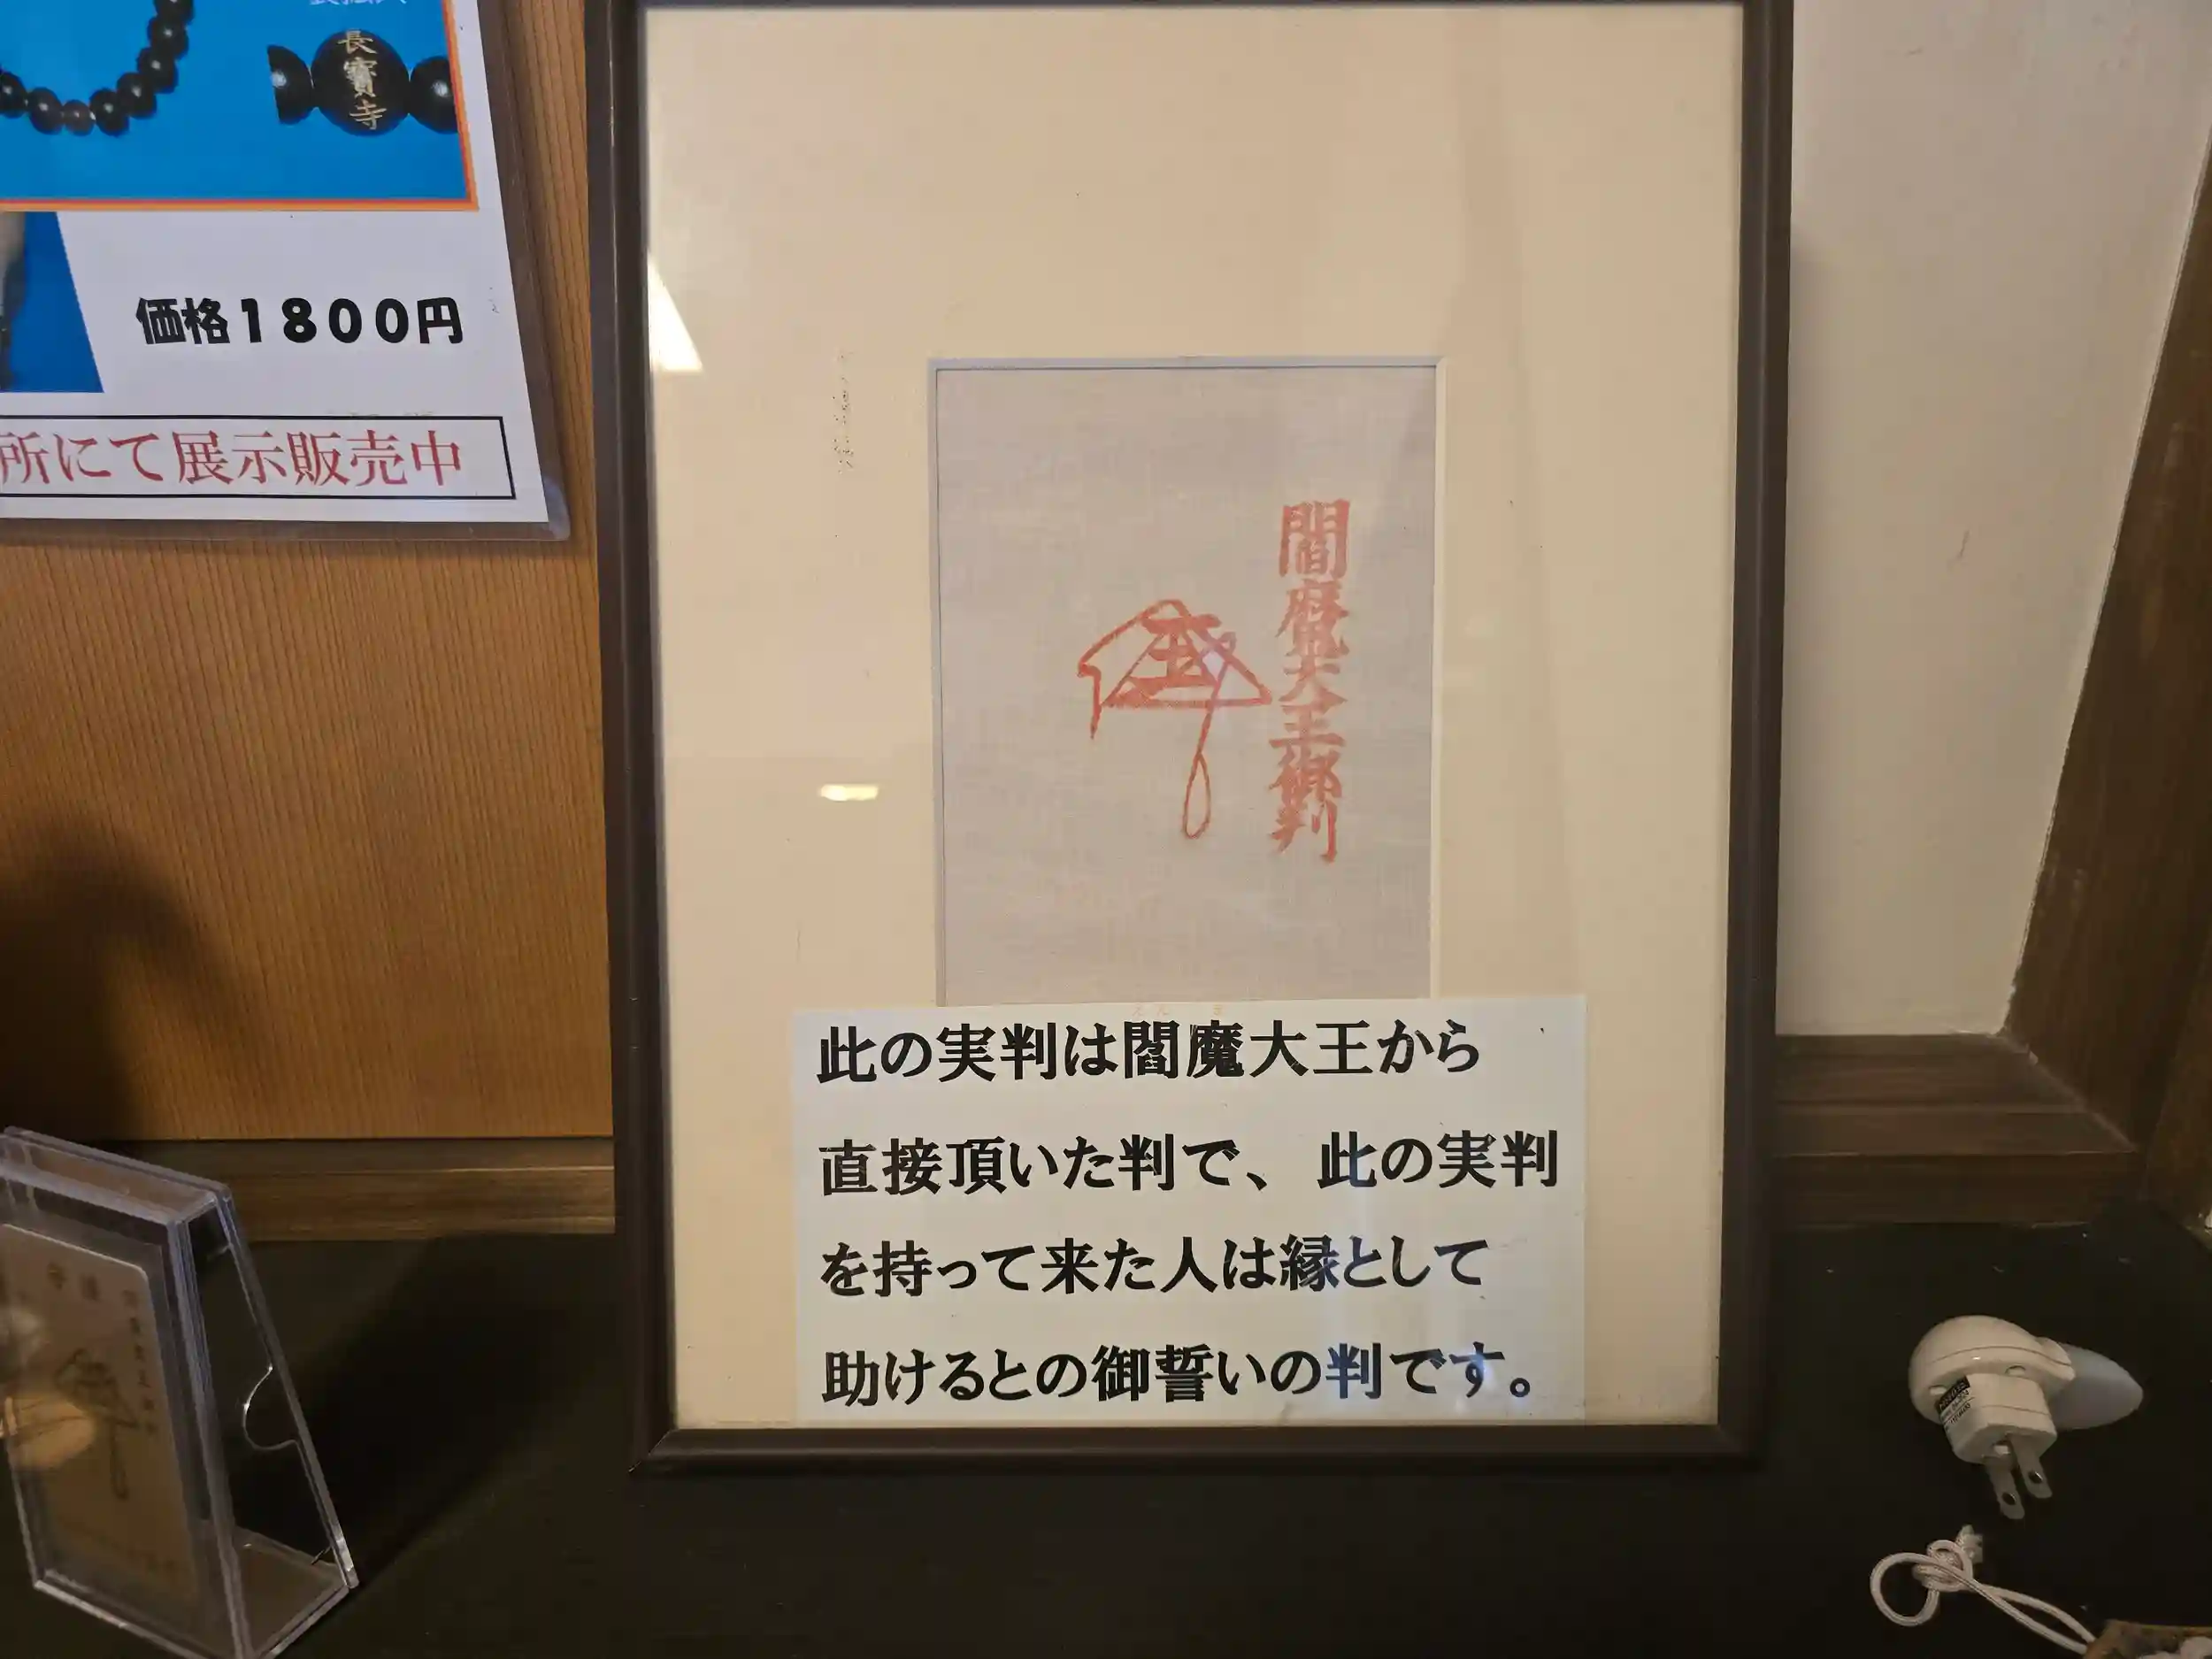 長寶寺
価格1800円
所にて展示販売中
閻魔大王御判
此の実判は閻魔大王から
直接頂いた判で、此の実判
を持って来た人は縁として
助けるとの御誓いの判です。